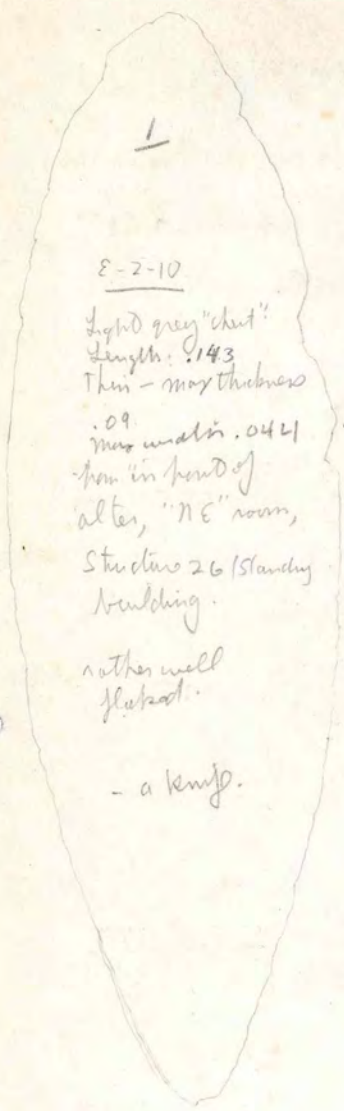 1
E-2-10
Light grey "chert".
Length: .143
Thin - max thickness
.09
max width .0421
from "in front of
alter, "NE" room,
Structure 26/Standing
building.
rather well
flaked.
- a knife.